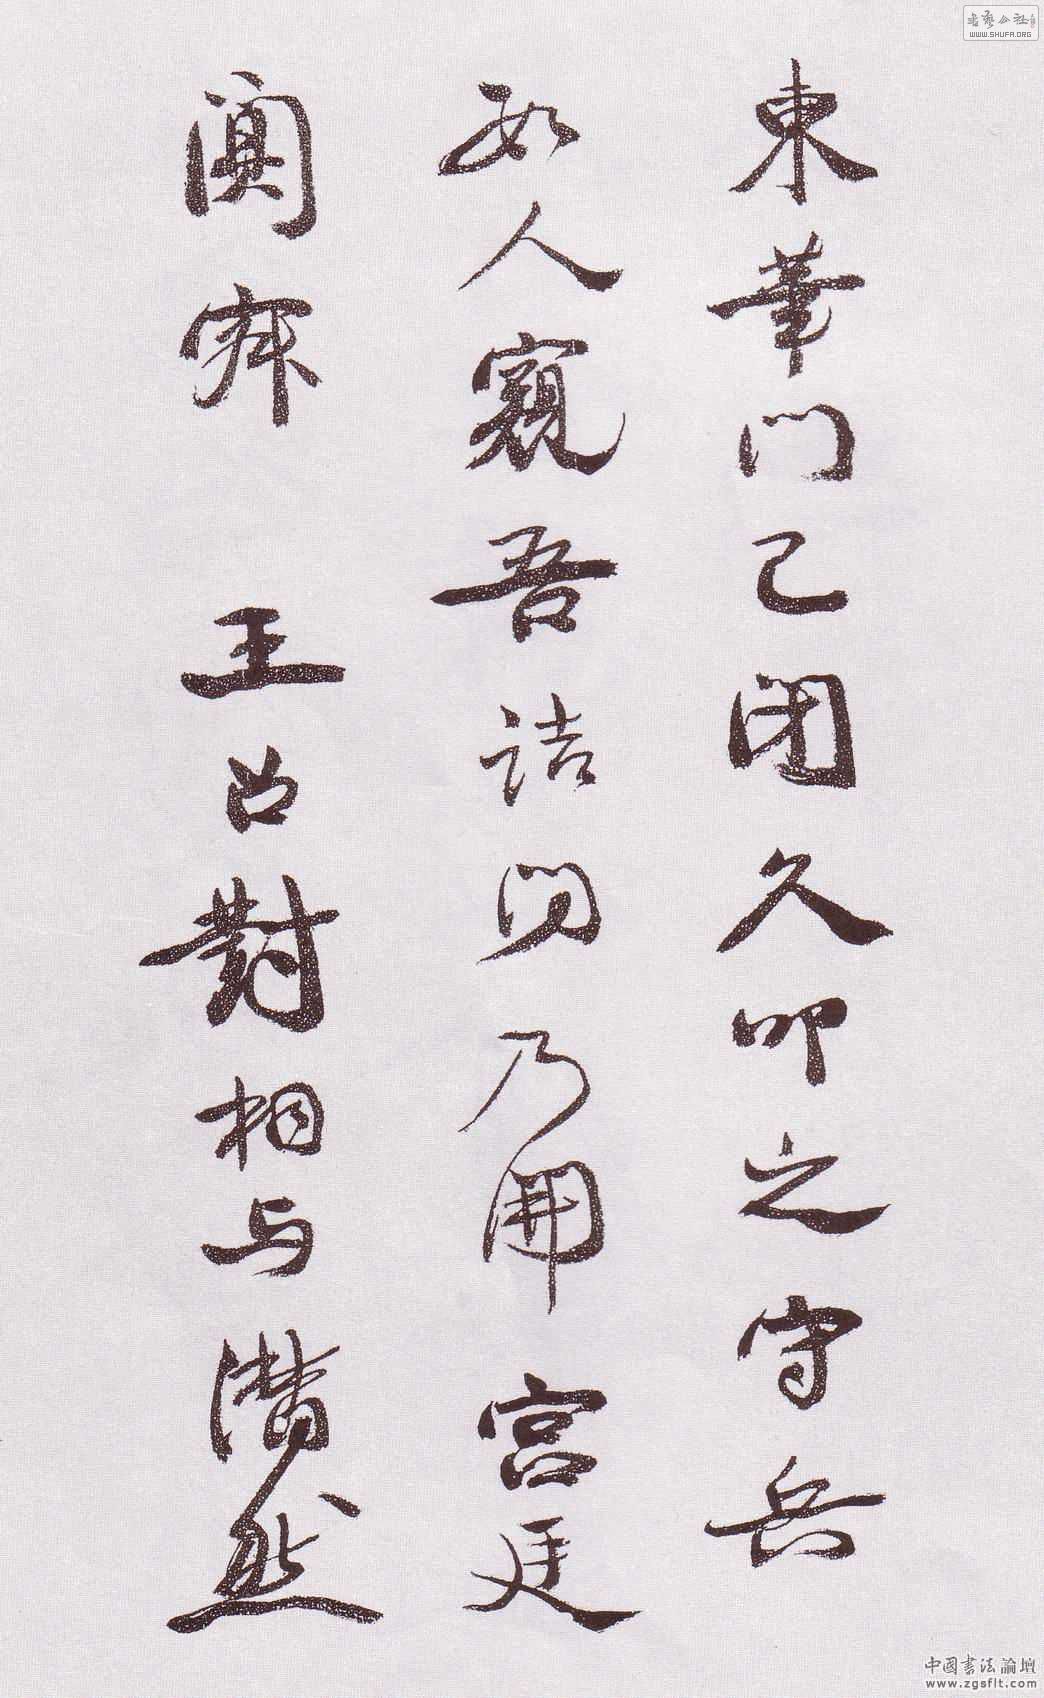 東華門已閉久叩之守兵
數人窺吾詰問乃開宮廷
闃寂 王召對相與潸然
書藝公社
WWW.SHUFA.ORG
中國書法論壇
www.zgsflt.com